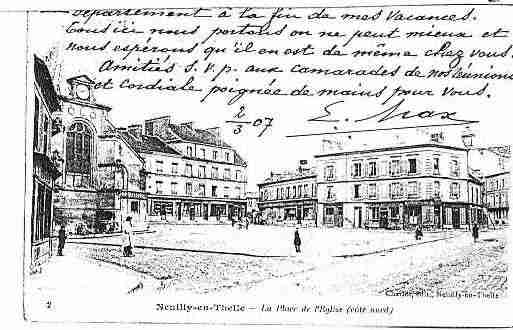 département à la fin de mes vacances.
Tous ici nous portons on ne peut mieux et
nous espérons qu'il en est de même chez vous.
Amitiés s.v.p. aux camarades de nos réunions
et cordiale poignée de mains pour vous.
2/3 07
2 Neuilly-en-Thelle — La Place de l'Eglise (côté nord)
édit., Neuilly-en-Thelle